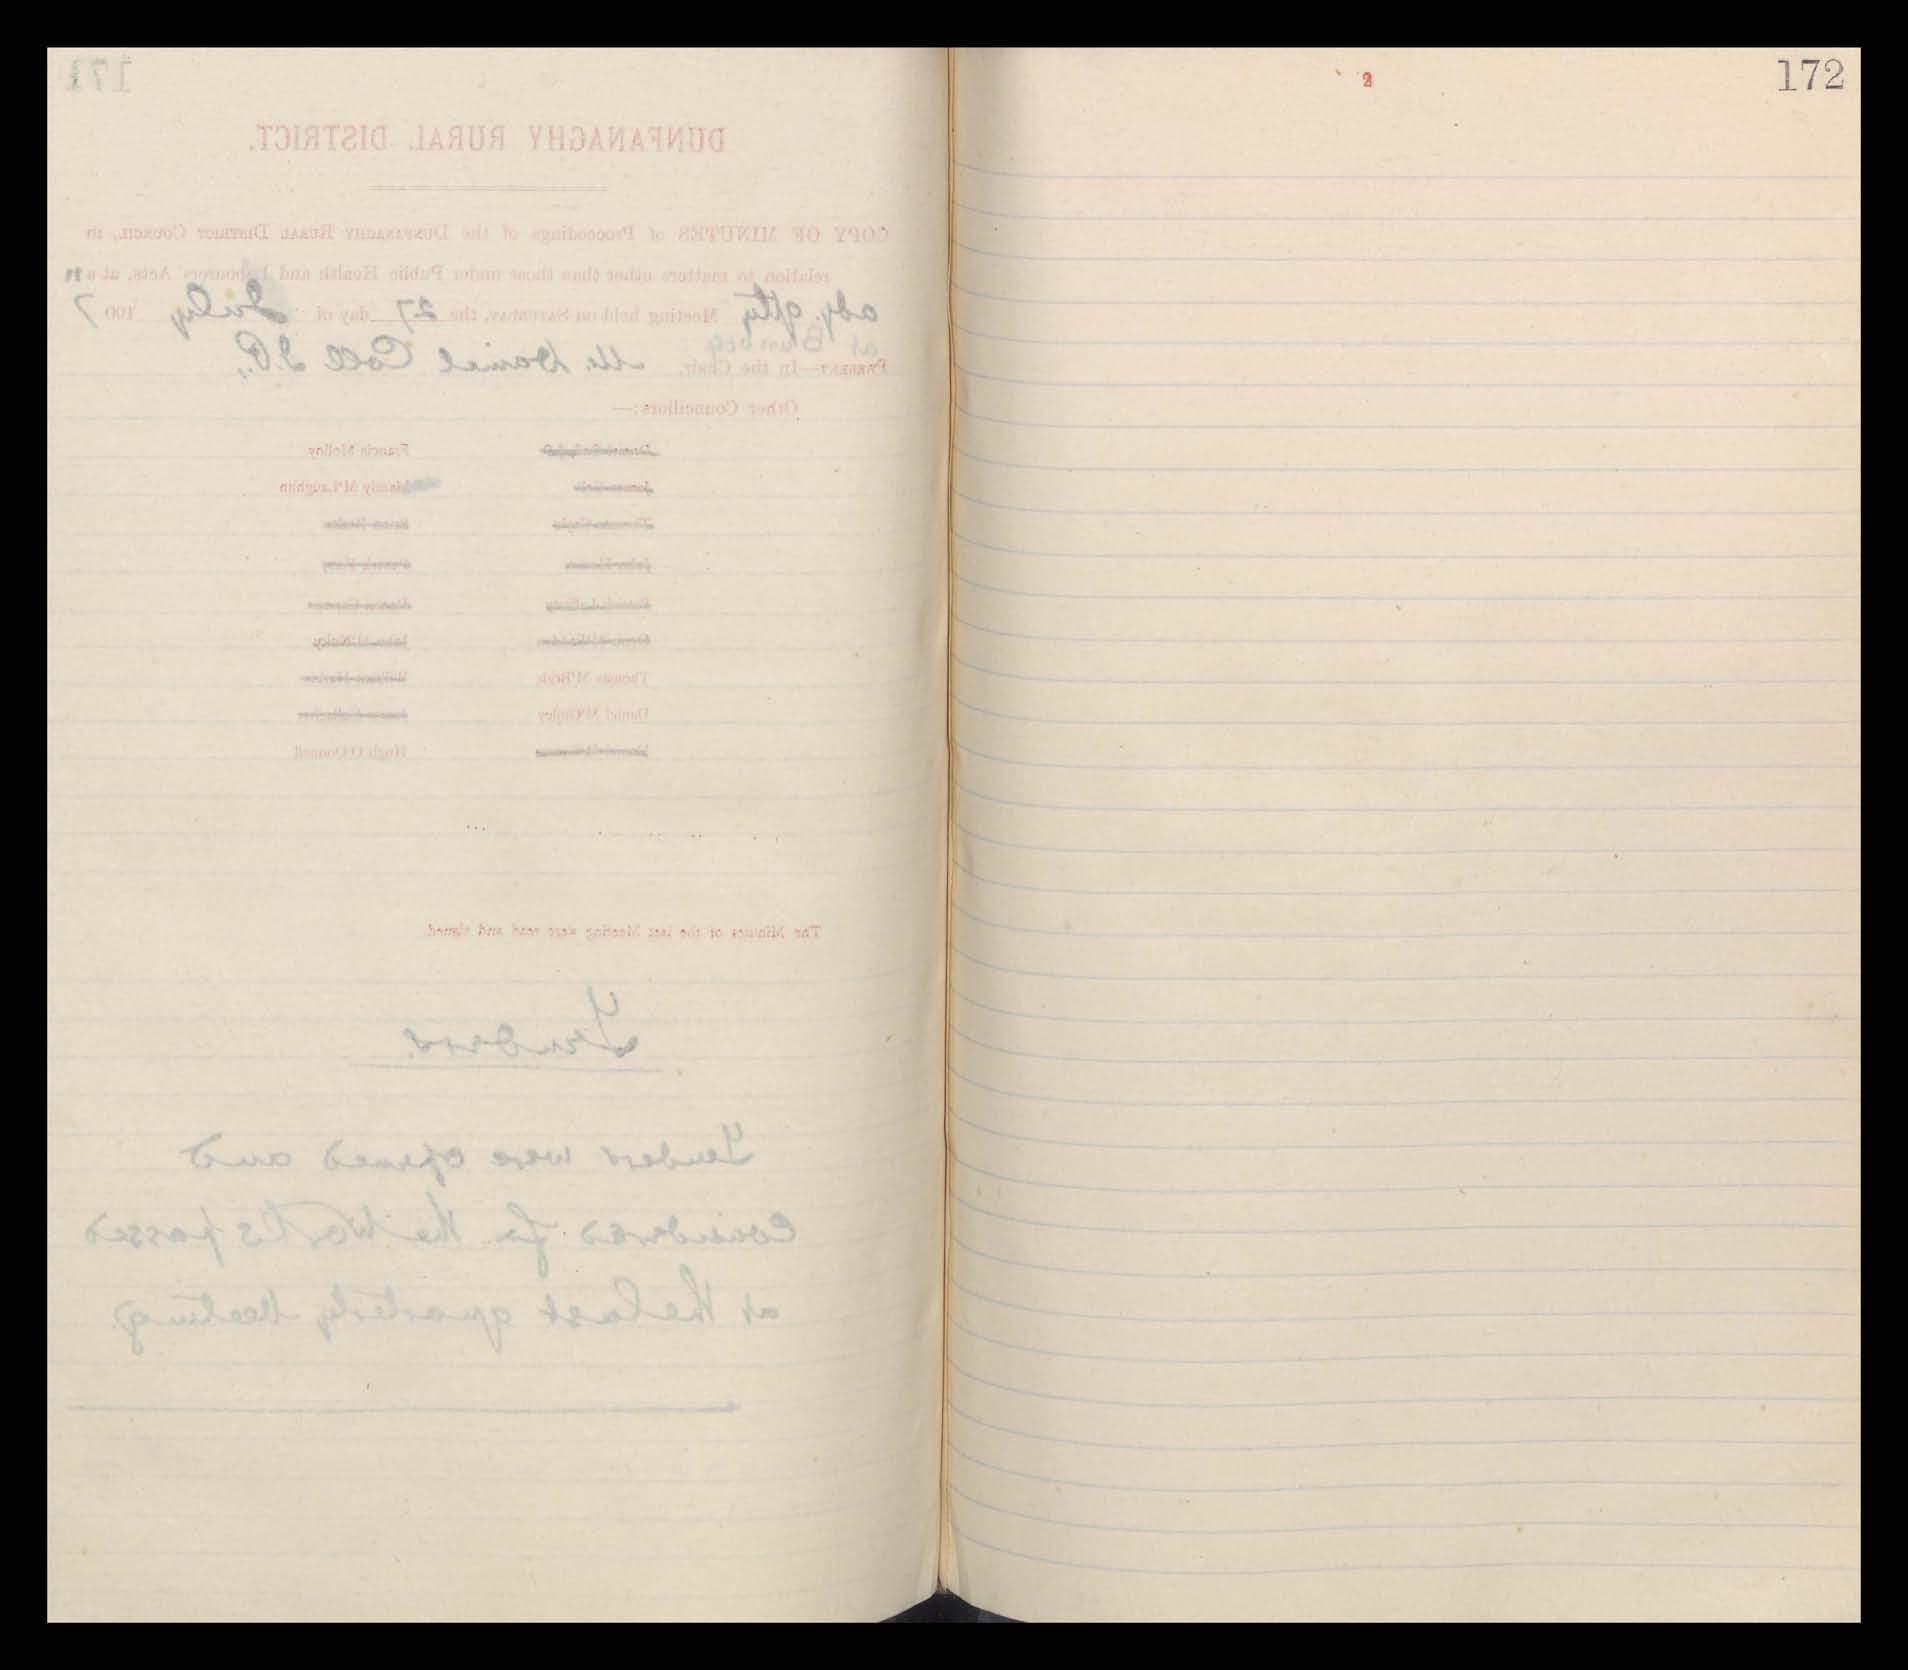 171
DUNFANAGHY RURAL DISTRICT.
COPY OF MINUTES of Proceedings of the DUNFANAGHY RURAL DISTRICT COUNCIL, in
relation to matters other than those under Public Health and Labourers' Acts, at a n
adj. qtly Meeting held on SATURDAY, the 27 day of July 190 7
at Bunbeg
PRESENT—In the Chair, Mr. Daniel Coll J.P.,
Other Councillors:—
Francis Molloy
Manly M'Laughlin
Thomas M'Bride
Daniel M'Ginley
Hugh O'Donnell
The Minutes of the last Meeting were read and signed.
Tenders.
Tenders were opened and
Considered for the Works passed
at the last quarterly Meeting.
2
172